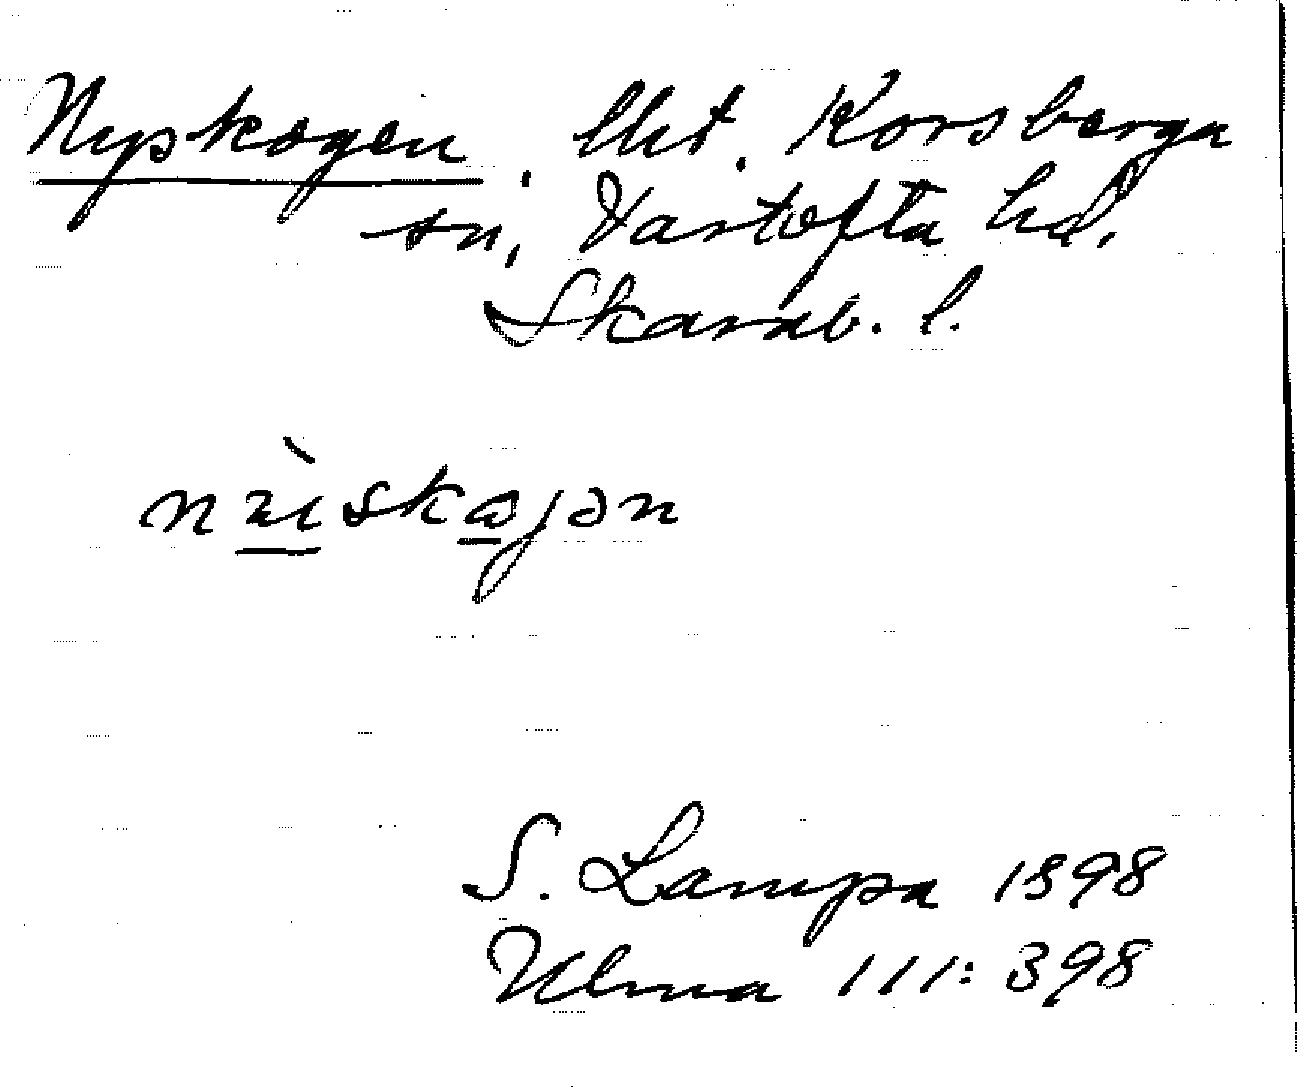 Nyskogen, llht. Korsberga
sn, Vartofta hd,
Skarab. l.
S. Lampa 1898
Ulma 111:398